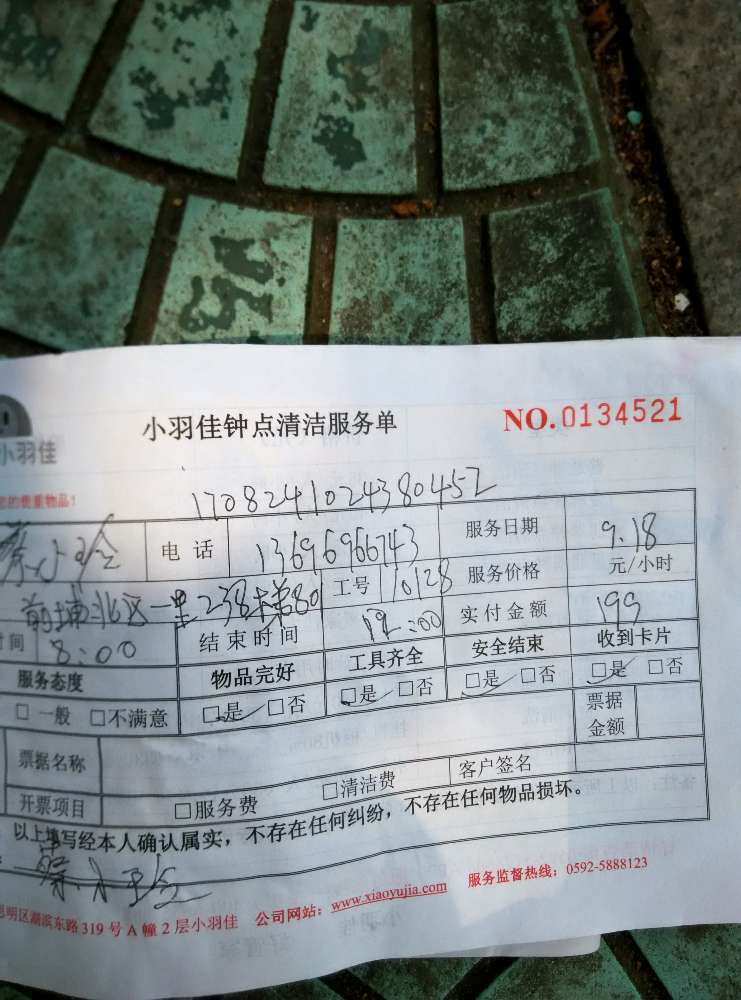 小羽佳钟点清洁服务单 NO.0134521
小羽佳
您的贵重物品！
1708241024380452
蔡小玲 电话 13696966743 服务日期 9.18
前埔北区一里238 工号 110128 服务价格 元/小时
时间 8:00 结束时间 12:00 实付金额 199
服务态度 物品完好 工具齐全 安全结束 收到卡片
□一般 □不满意 □是 □否 □是 □否 □是 □否 □是 □否
票据名称 票据金额
开票项目 □服务费 □清洁费 客户签名
以上填写经本人确认属实，不存在任何纠纷，不存在任何物品损坏。
蔡小玲
思明区湖滨东路319号A幢2层小羽佳 公司网站：www.xiaoyujia.com 服务监督热线：0592-5888123